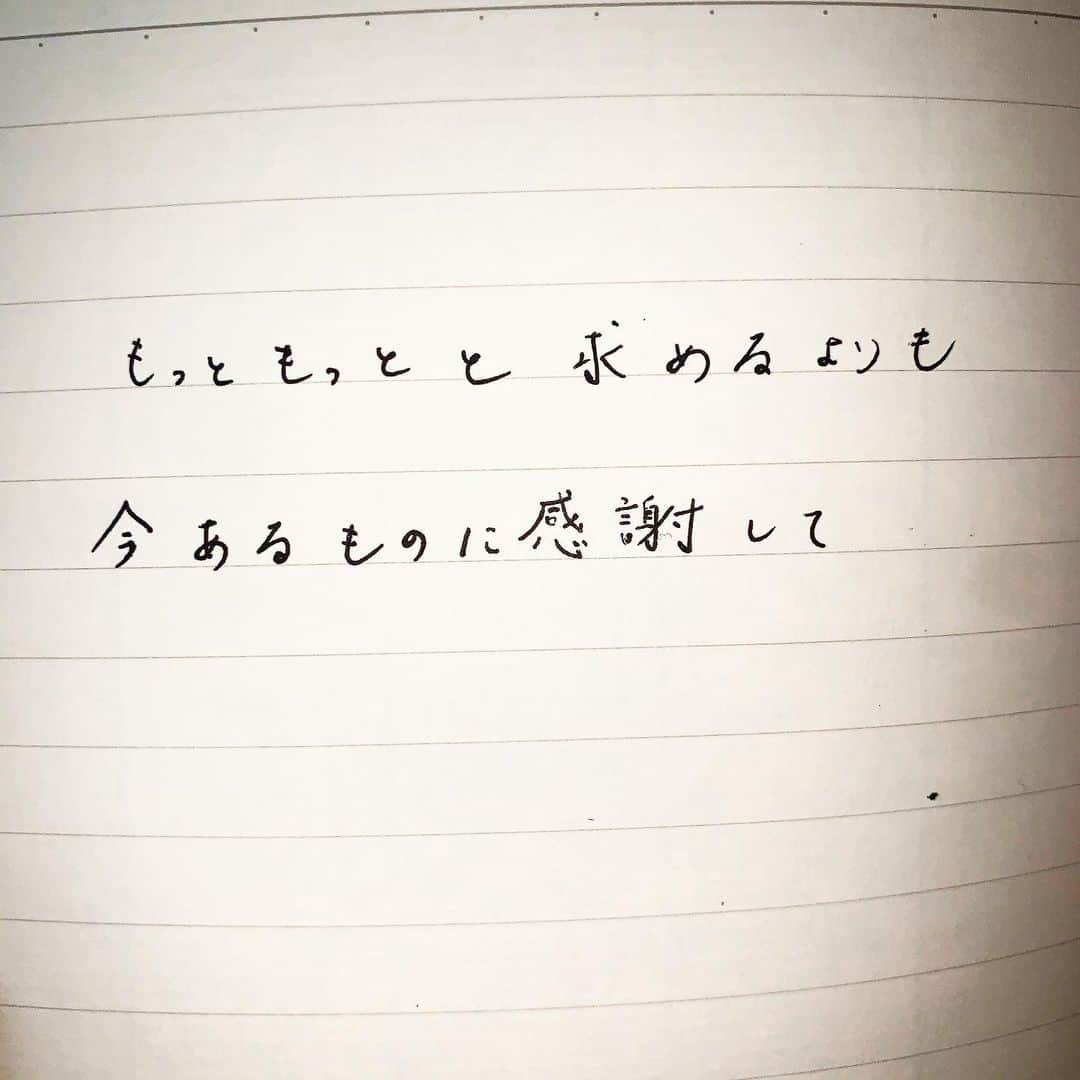 もっともっとと求めるよりも
今あるものに感謝して